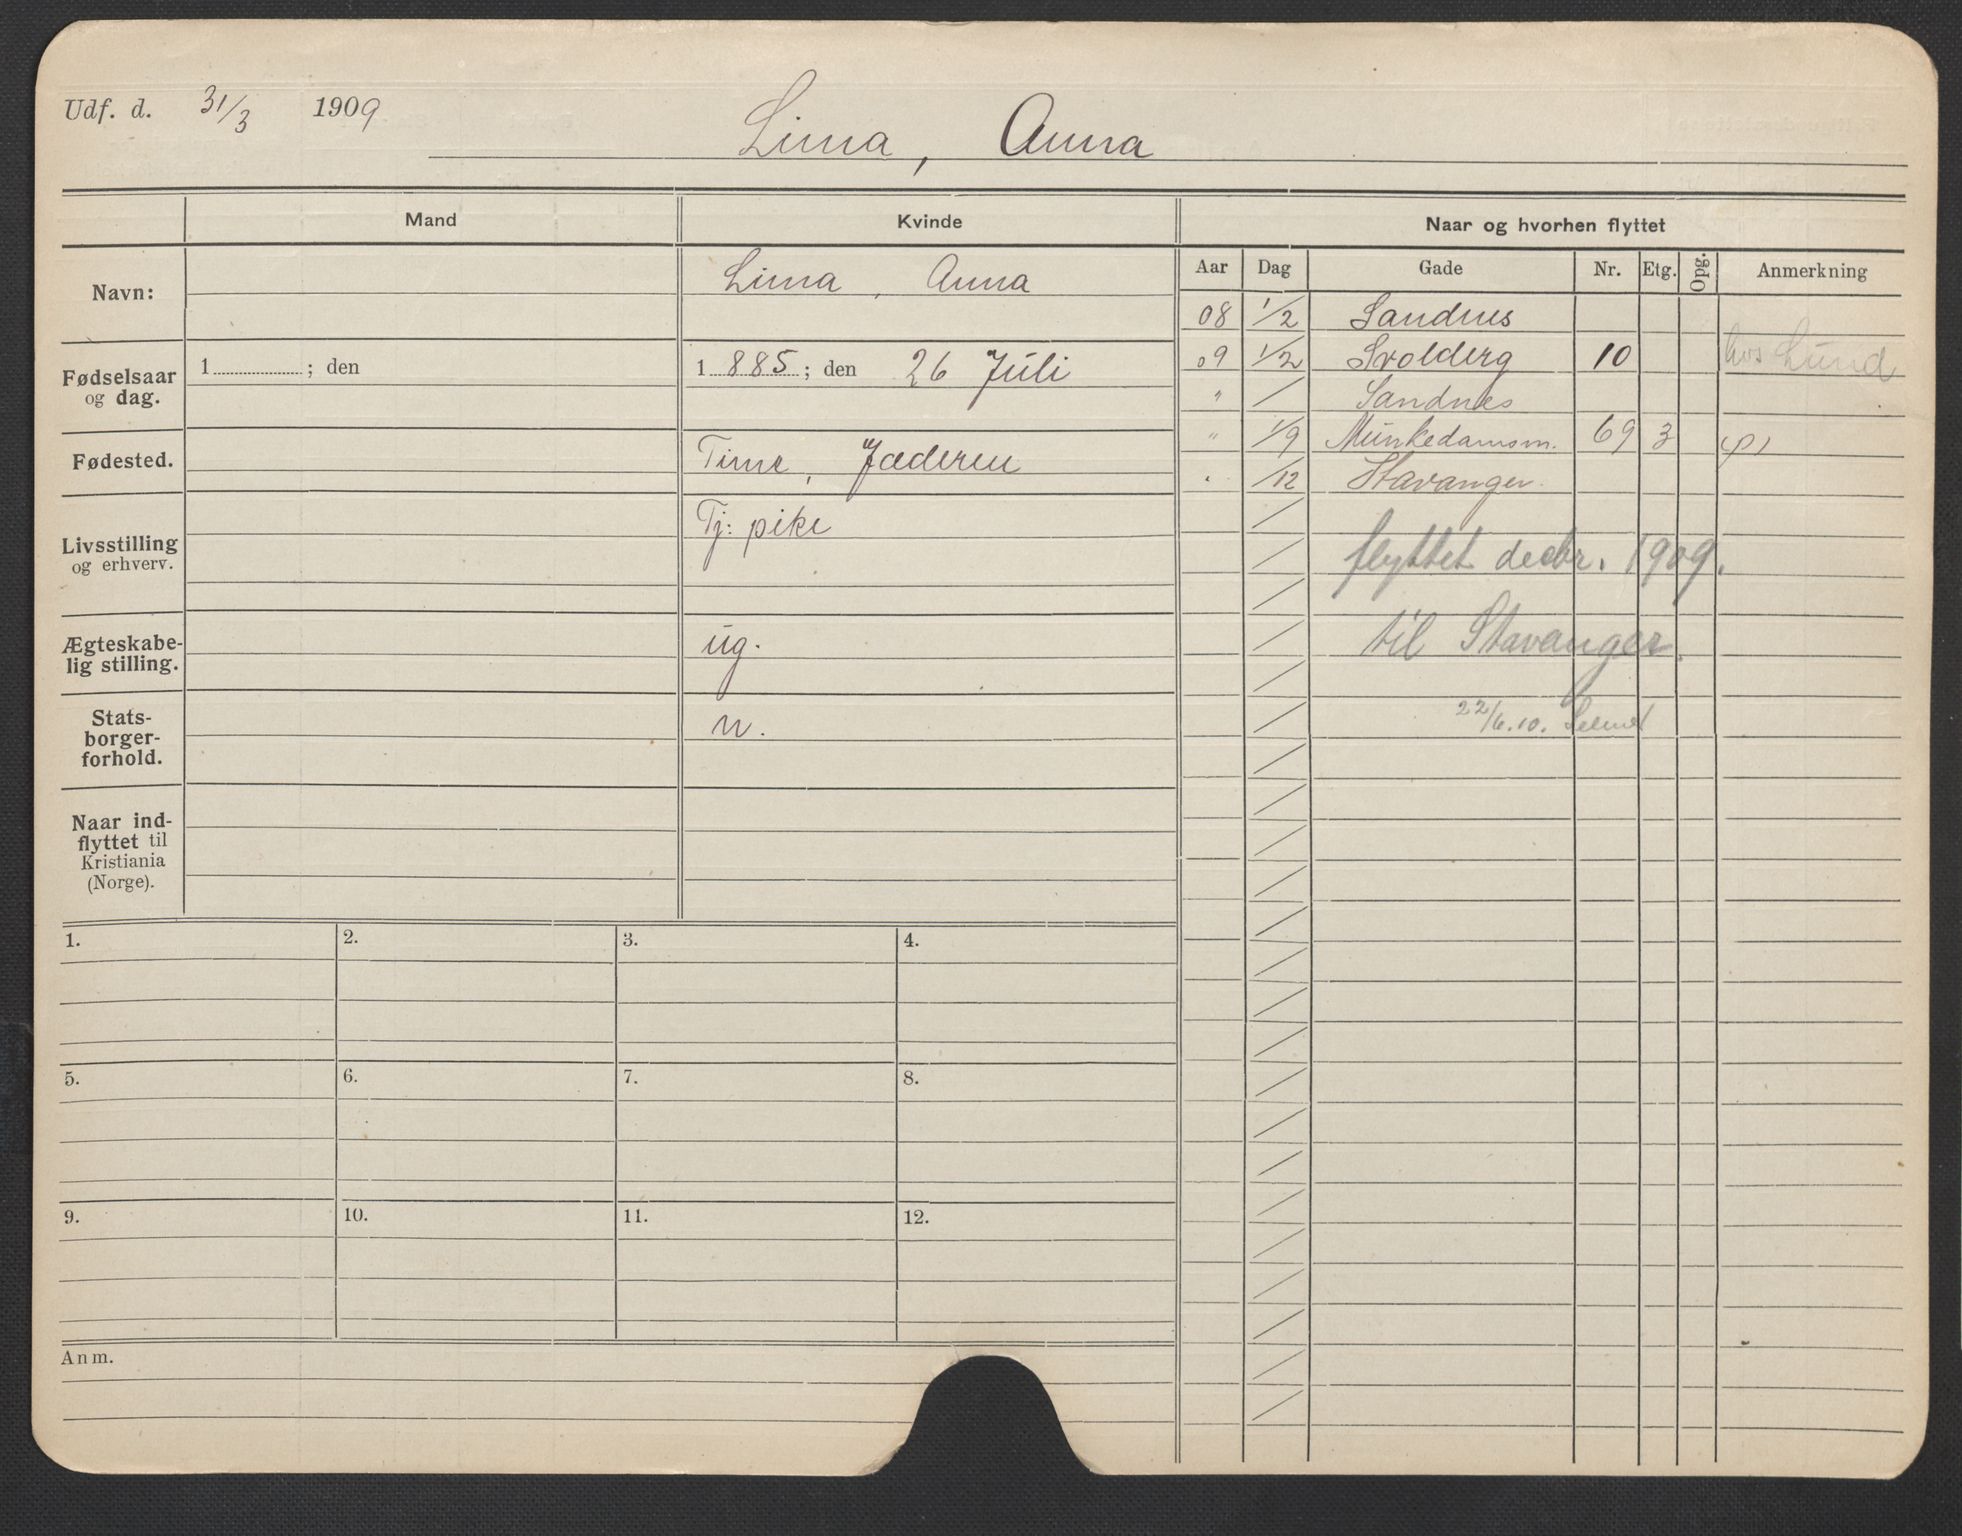 Udf. d. 31/3 1909
Lima, Anna
Mand
Kvinde
Naar og hvorhen flyttet
Aar Dag Gade Nr. Etg. Opg. Anmerkning
Navn:
Lima, Anna
08 1/2 Sandnes
09 1/2 Svolderg 10 hos Lund
" / Sandnes
" 1/9 Munkedamsv. 69 3
. /12 Stavanger.
flyttet decbr. 1909.
til Stavanger.
22/6.10.
Fødselsaar
og dag.
1 ; den
1 885 ; den 26 Juli
Fødested.
Time, Jæderen
Livsstilling
og erhverv.
Tj: pike
Ægteskabe-
lig stilling.
ug.
Stats-
borger-
forhold.
n.
Naar ind-
flyttet til
Kristiania
(Norge).
1. 2. 3. 4.
5. 6. 7. 8.
9. 10. 11. 12.
Anm.